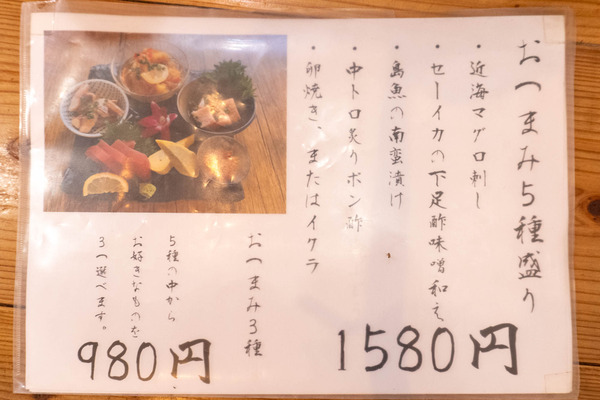 おつまみ5種盛り
・近海マグロ刺し
・セーイカの下足酢味噌和え
・島魚の南蛮漬け
・中トロ炙りポン酢
・卵焼き、またはイクラ
1580円
おつまみ3種
5種の中から
お好きなものを
3つ選べます。
980円